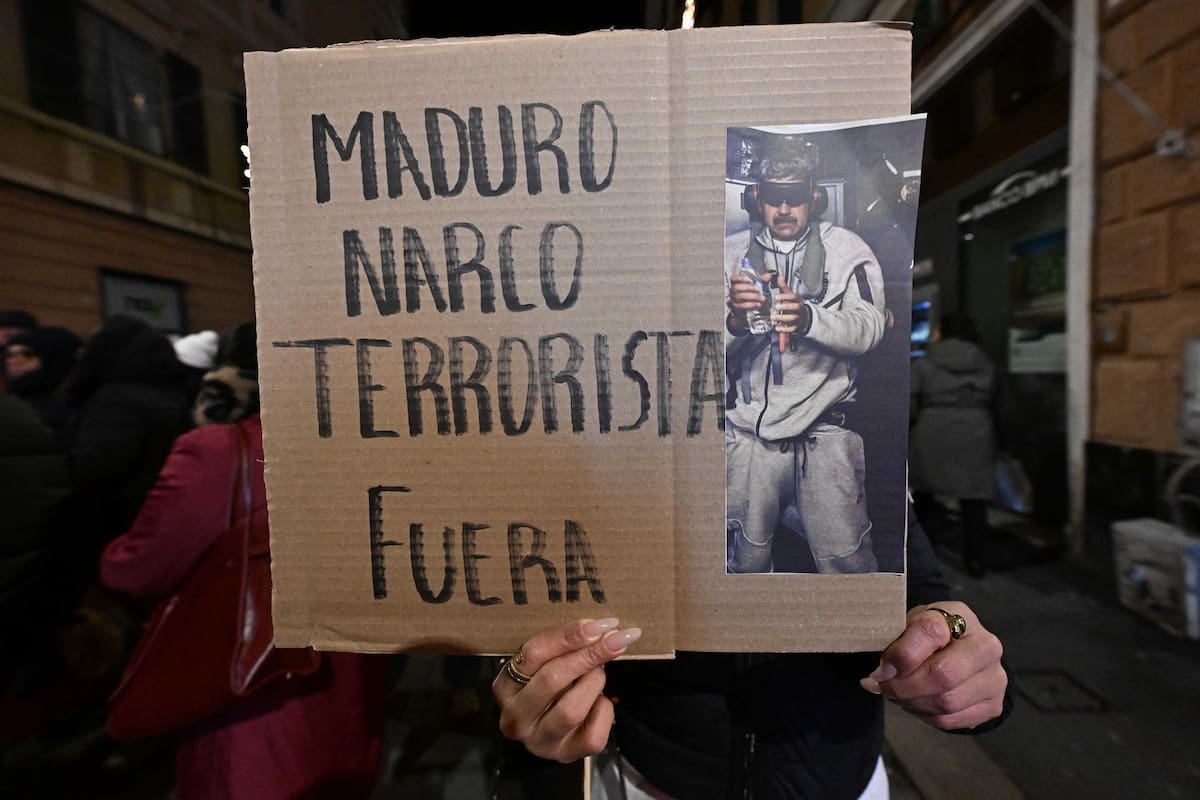 MADURO
NARCO
TERRORISTA
FUERA